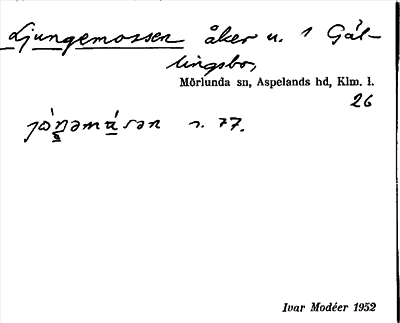 Ljungemossen åker u. 1 Gäl-
lingsbo,
Mörlunda sn, Aspelands hd, Klm. l.
26
s. 77.
Ivar Modéer 1952